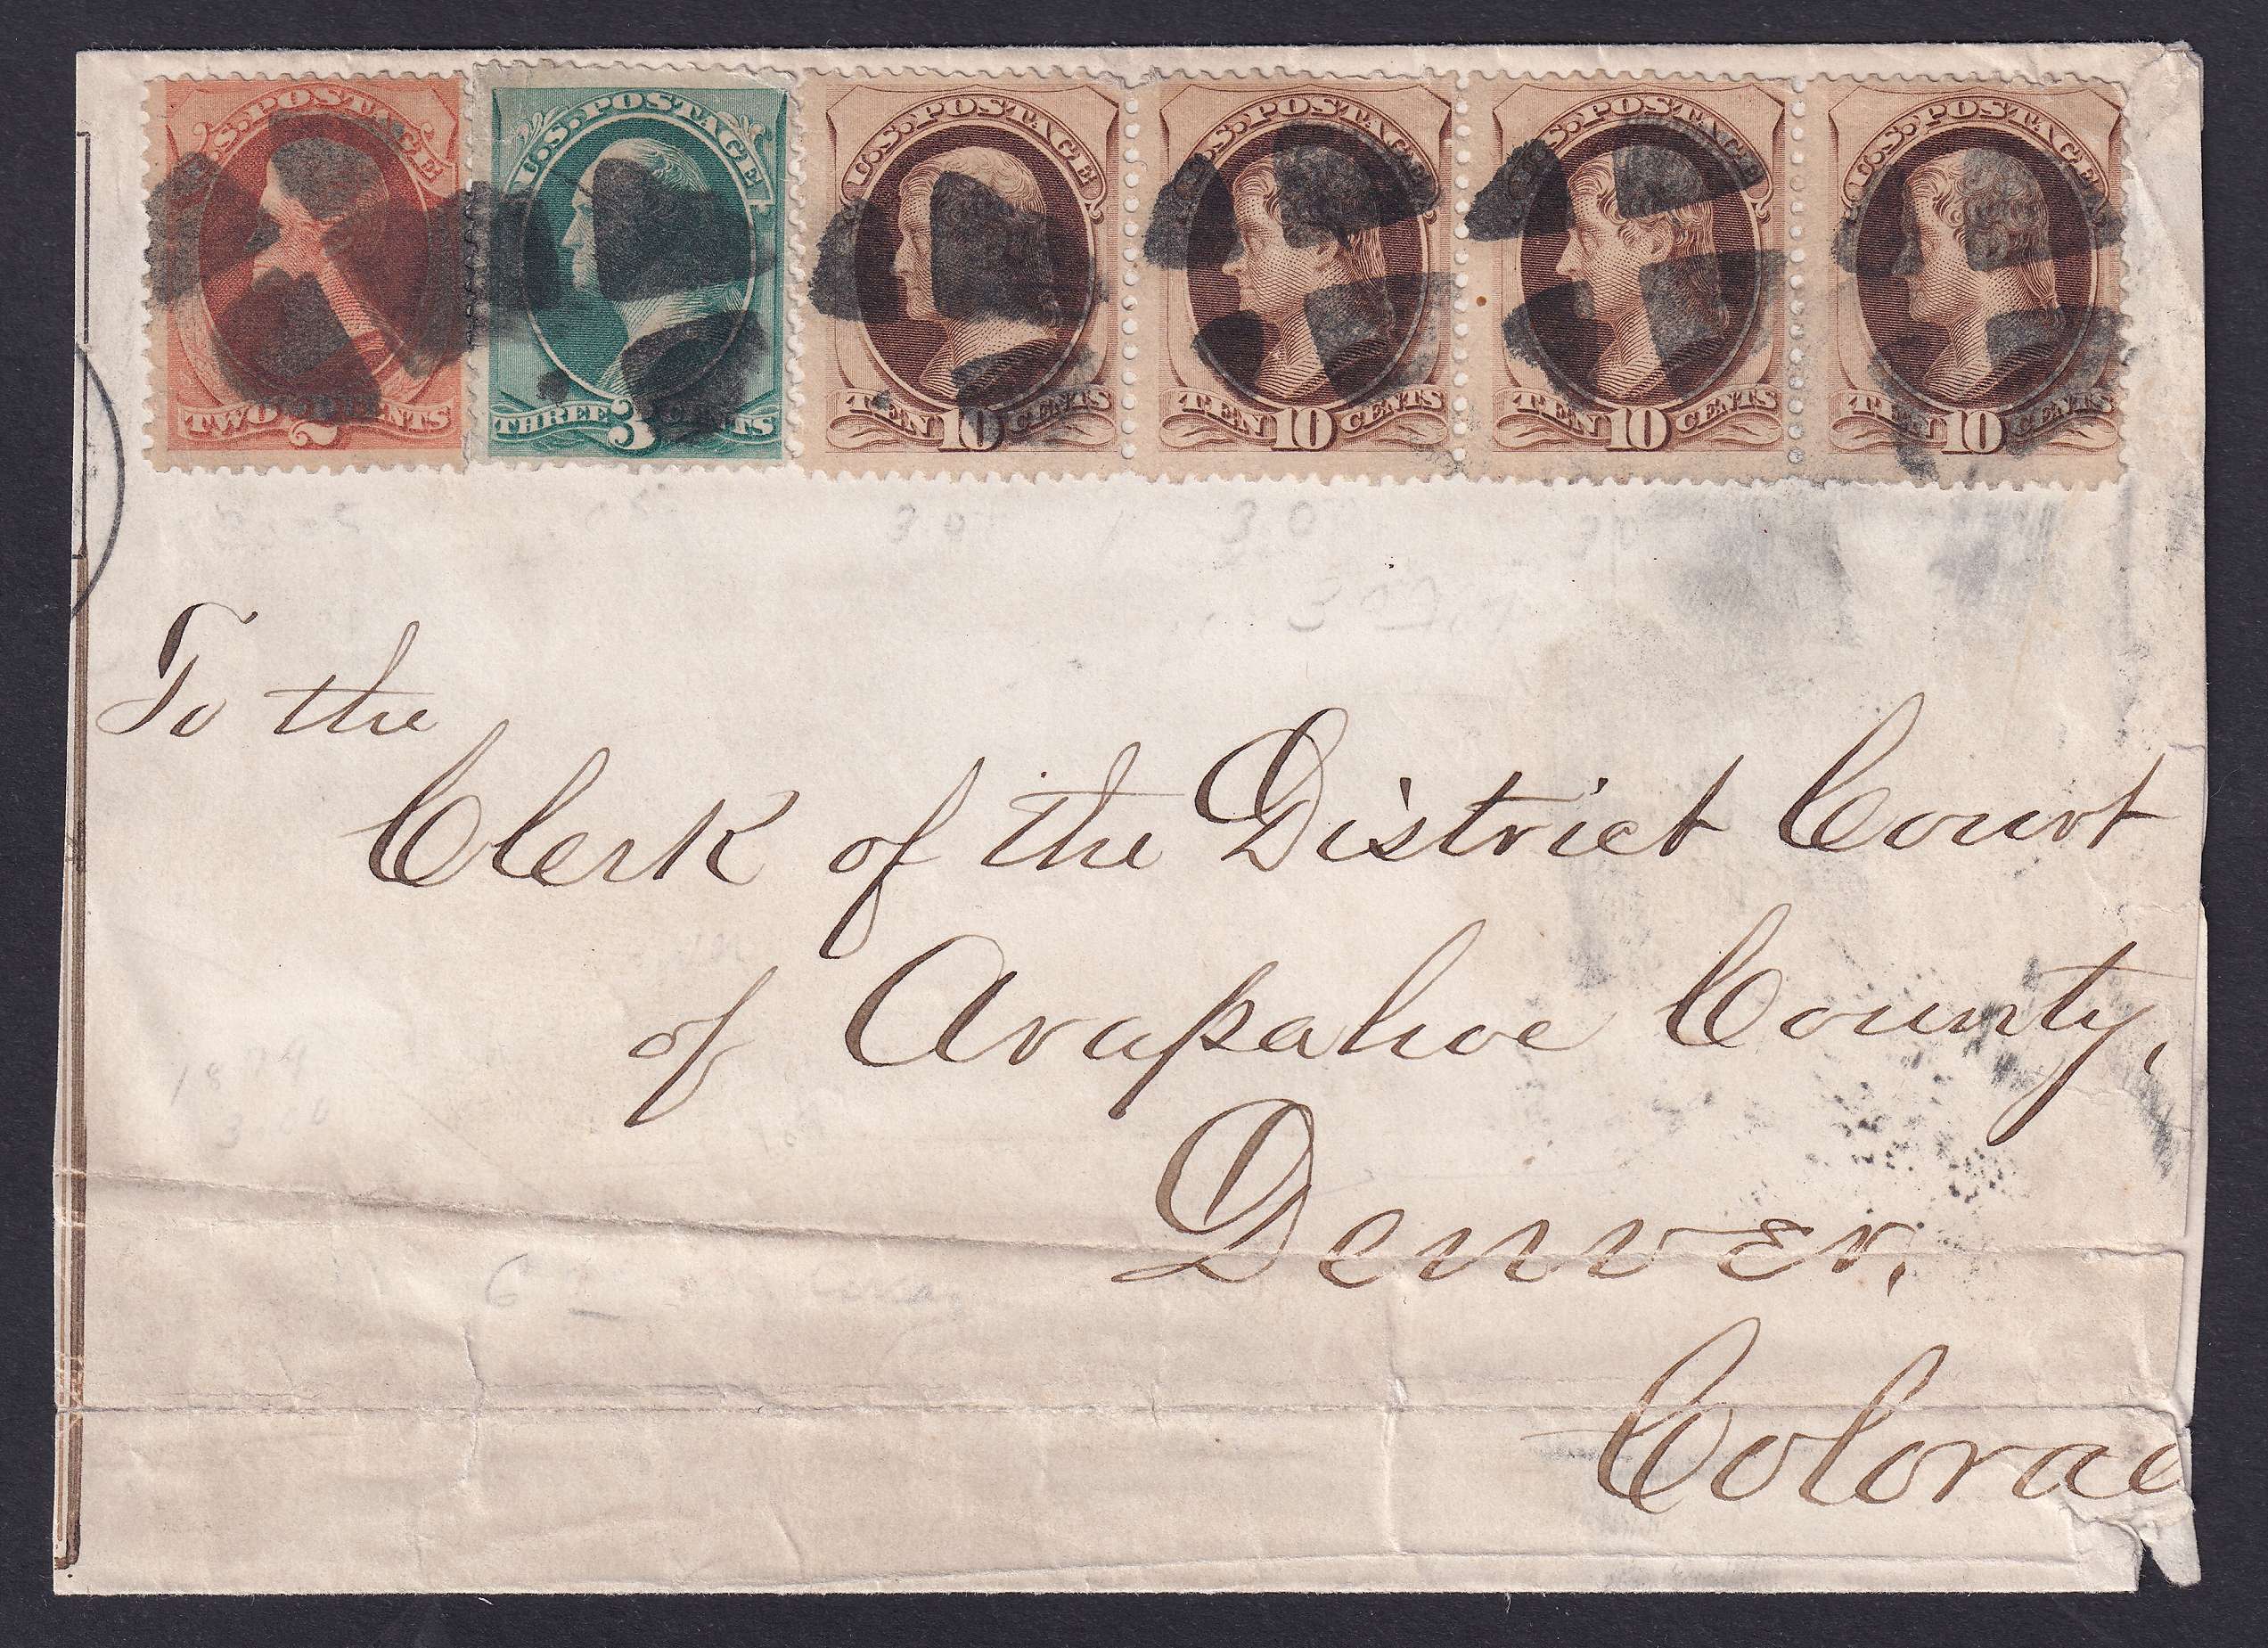 U.S. POSTAGE U.S. POSTAGE U.S. POSTAGE U.S. POSTAGE U.S. POSTAGE U.S. POSTAGE
TWO 2 CENTS THREE 3 CENTS TEN 10 CENTS TEN 10 CENTS TEN 10 CENTS TEN 10 CENTS
30 30
To the
Clerk of the District Court
of Arapahoe County,
Denver,
Colorad